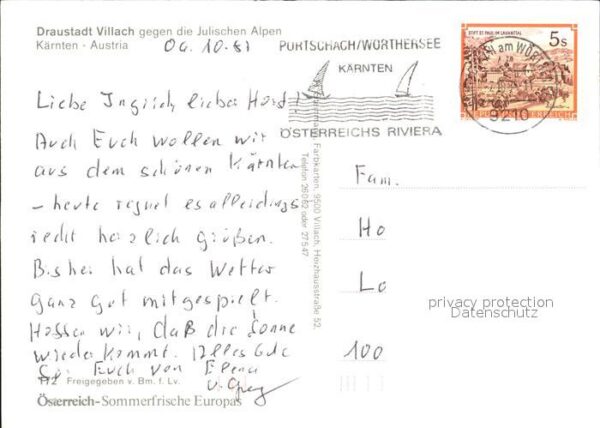 Draustadt Villach gegen die Julischen Alpen
Kärnten - Austria
PÖRTSCHACH/WÖRTHERSEE
KÄRNTEN
ÖSTERREICHS RIVIERA
STIFT ST. PAUL IM LAVANTTAL
5s
am WÖRTH
9210
REPUBLIK ÖSTERREICH
Liebe Ingrid, lieber Horst!
Auch Euch wollen wir
aus dem schönen Kärnten
- heute regnet es allerdings -
recht herzlich grüßen.
Bisher hat das Wetter
ganz gut mitgespielt.
Hoffen wir, daß die Sonne
wieder kommt. Alles Gute
Euch von Elena
u.
Farbkarten, 9500 Villach, Holzhausstraße 52,
Telefon 26062 oder 27547
Fam.
Ho
Lo
100
privacy protection
Datenschutz
112 Freigegeben v. Bm. f. Lv.
Österreich-Sommerfrische Europas